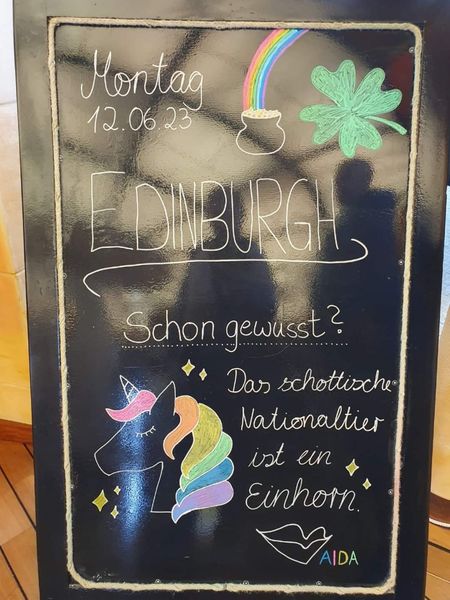 Montag
12.06.23
EDINBURGH
Schon gewusst?
Das schottische
Nationaltier
ist ein
Einhorn.
AIDA